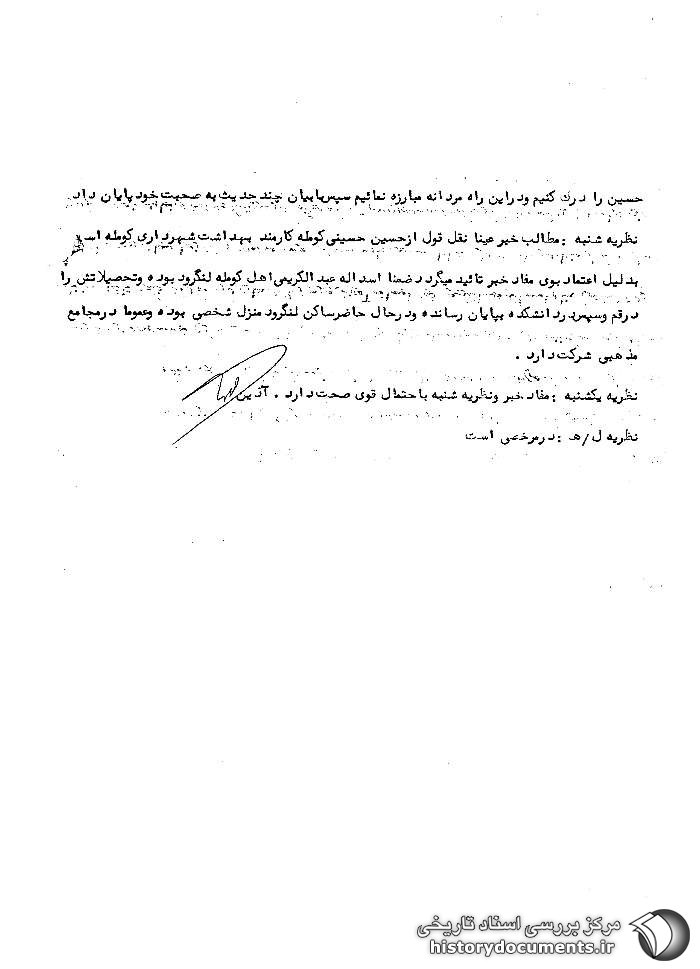 حسین را درک کنیم ودراین راه مردانه مبارزه نمائیم سپس بابیان چند حدیث به صحبت خود پایان داد
نظریه شنبه : مطالب خبر عینا نقل قول از حسین حسینی کومله کارمند بهداشت شهرداری کومله است
بدلیل اعتماد بوی مفاد خبر تائید میگردد ضمنا اسداله عبدالکریمی اهل کومله لنگرود بوده وتحصیلاتش را
درقم وسپس در دانشکده بپایان رسانده ودرحال حاضر ساکن لنگرود منزل شخصی بوده وعموما درمجامع
مذهبی شرکت دارد .
نظریه یکشنبه : مفاد خبر ونظریه شنبه با احتمال قوی صحت دارد . آذین
نظریه ل/ه : درمرخصی است
مرکز بررسی اسناد تاریخی
historydocuments.ir